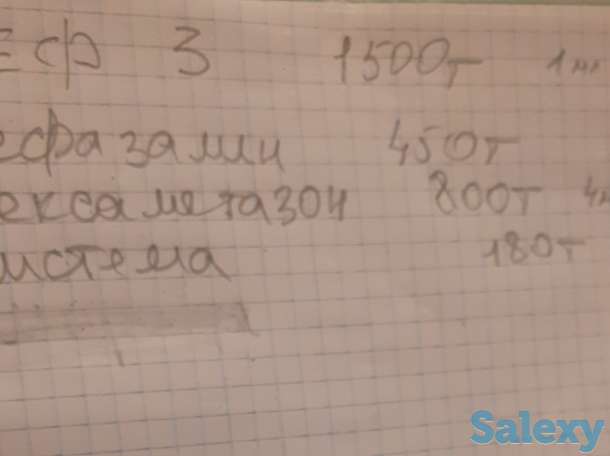 ЕСФ 3 1500т 1
ефазамин 450т
ексаметазон 800т 4
истема 180т
Salexy